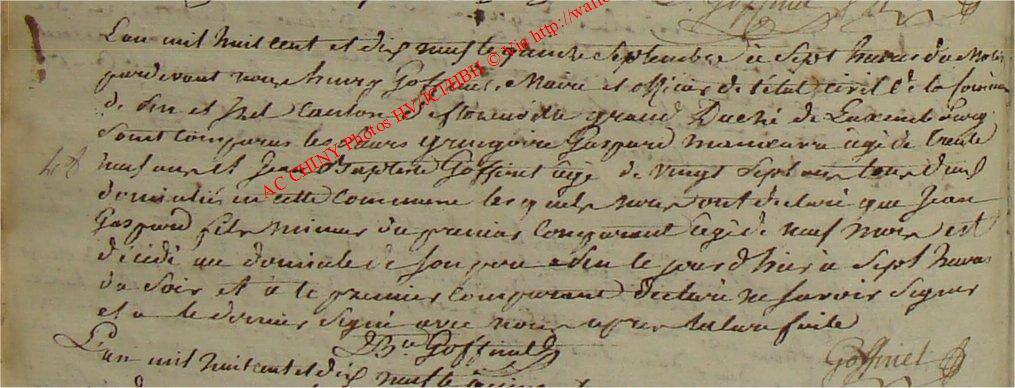 L'an mil huit cent et dix neuf le quinze Septembre à Sept heures du Matin
pardevant nous henry Goffinet, Maire et officier de l'état civil de la
de et Canton d' grand Duché de Luxembourg
Sont comparus les Sieurs gringoire Gaspard manœuvre âgé de trente
neuf ans et Jean Baptiste Goffinet âgé de vingt Sept ans tous deux
domiciliés en cette Commune les quels nous ont déclaré que Jean
Gaspard fils mineur du premier Comparant âgé de neuf mois est
décédé au domicile de Son père le jour d'hier à Sept heures
du Soir et a le premier Comparant déclaré ne Savoir Signer
et a le dernier Signé avec nous après lecture faite
JBte Goffinet Goffinet
L'an mil huit cent et dix neuf le
AC CHINY Photos HV-JCTHBH © Via http://wallo